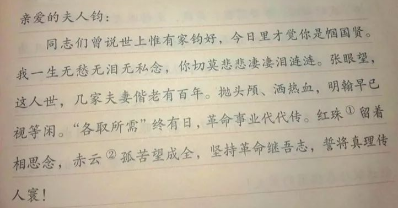 亲爱的夫人钧:
同志们曾说世上惟有家钧好，今日里才觉你是帼国贤。
我一生无愁无泪无私念，你切莫悲悲凄凄泪涟涟。张眼望，
这人世，几家夫妻偕老有百年。抛头颅、洒热血，明翰早已
视等闲。“各取所需”终有日，革命事业代代传。红珠①留着
相思念，赤云②孤苦望成全，坚持革命继吾志，誓将真理传
人寰！